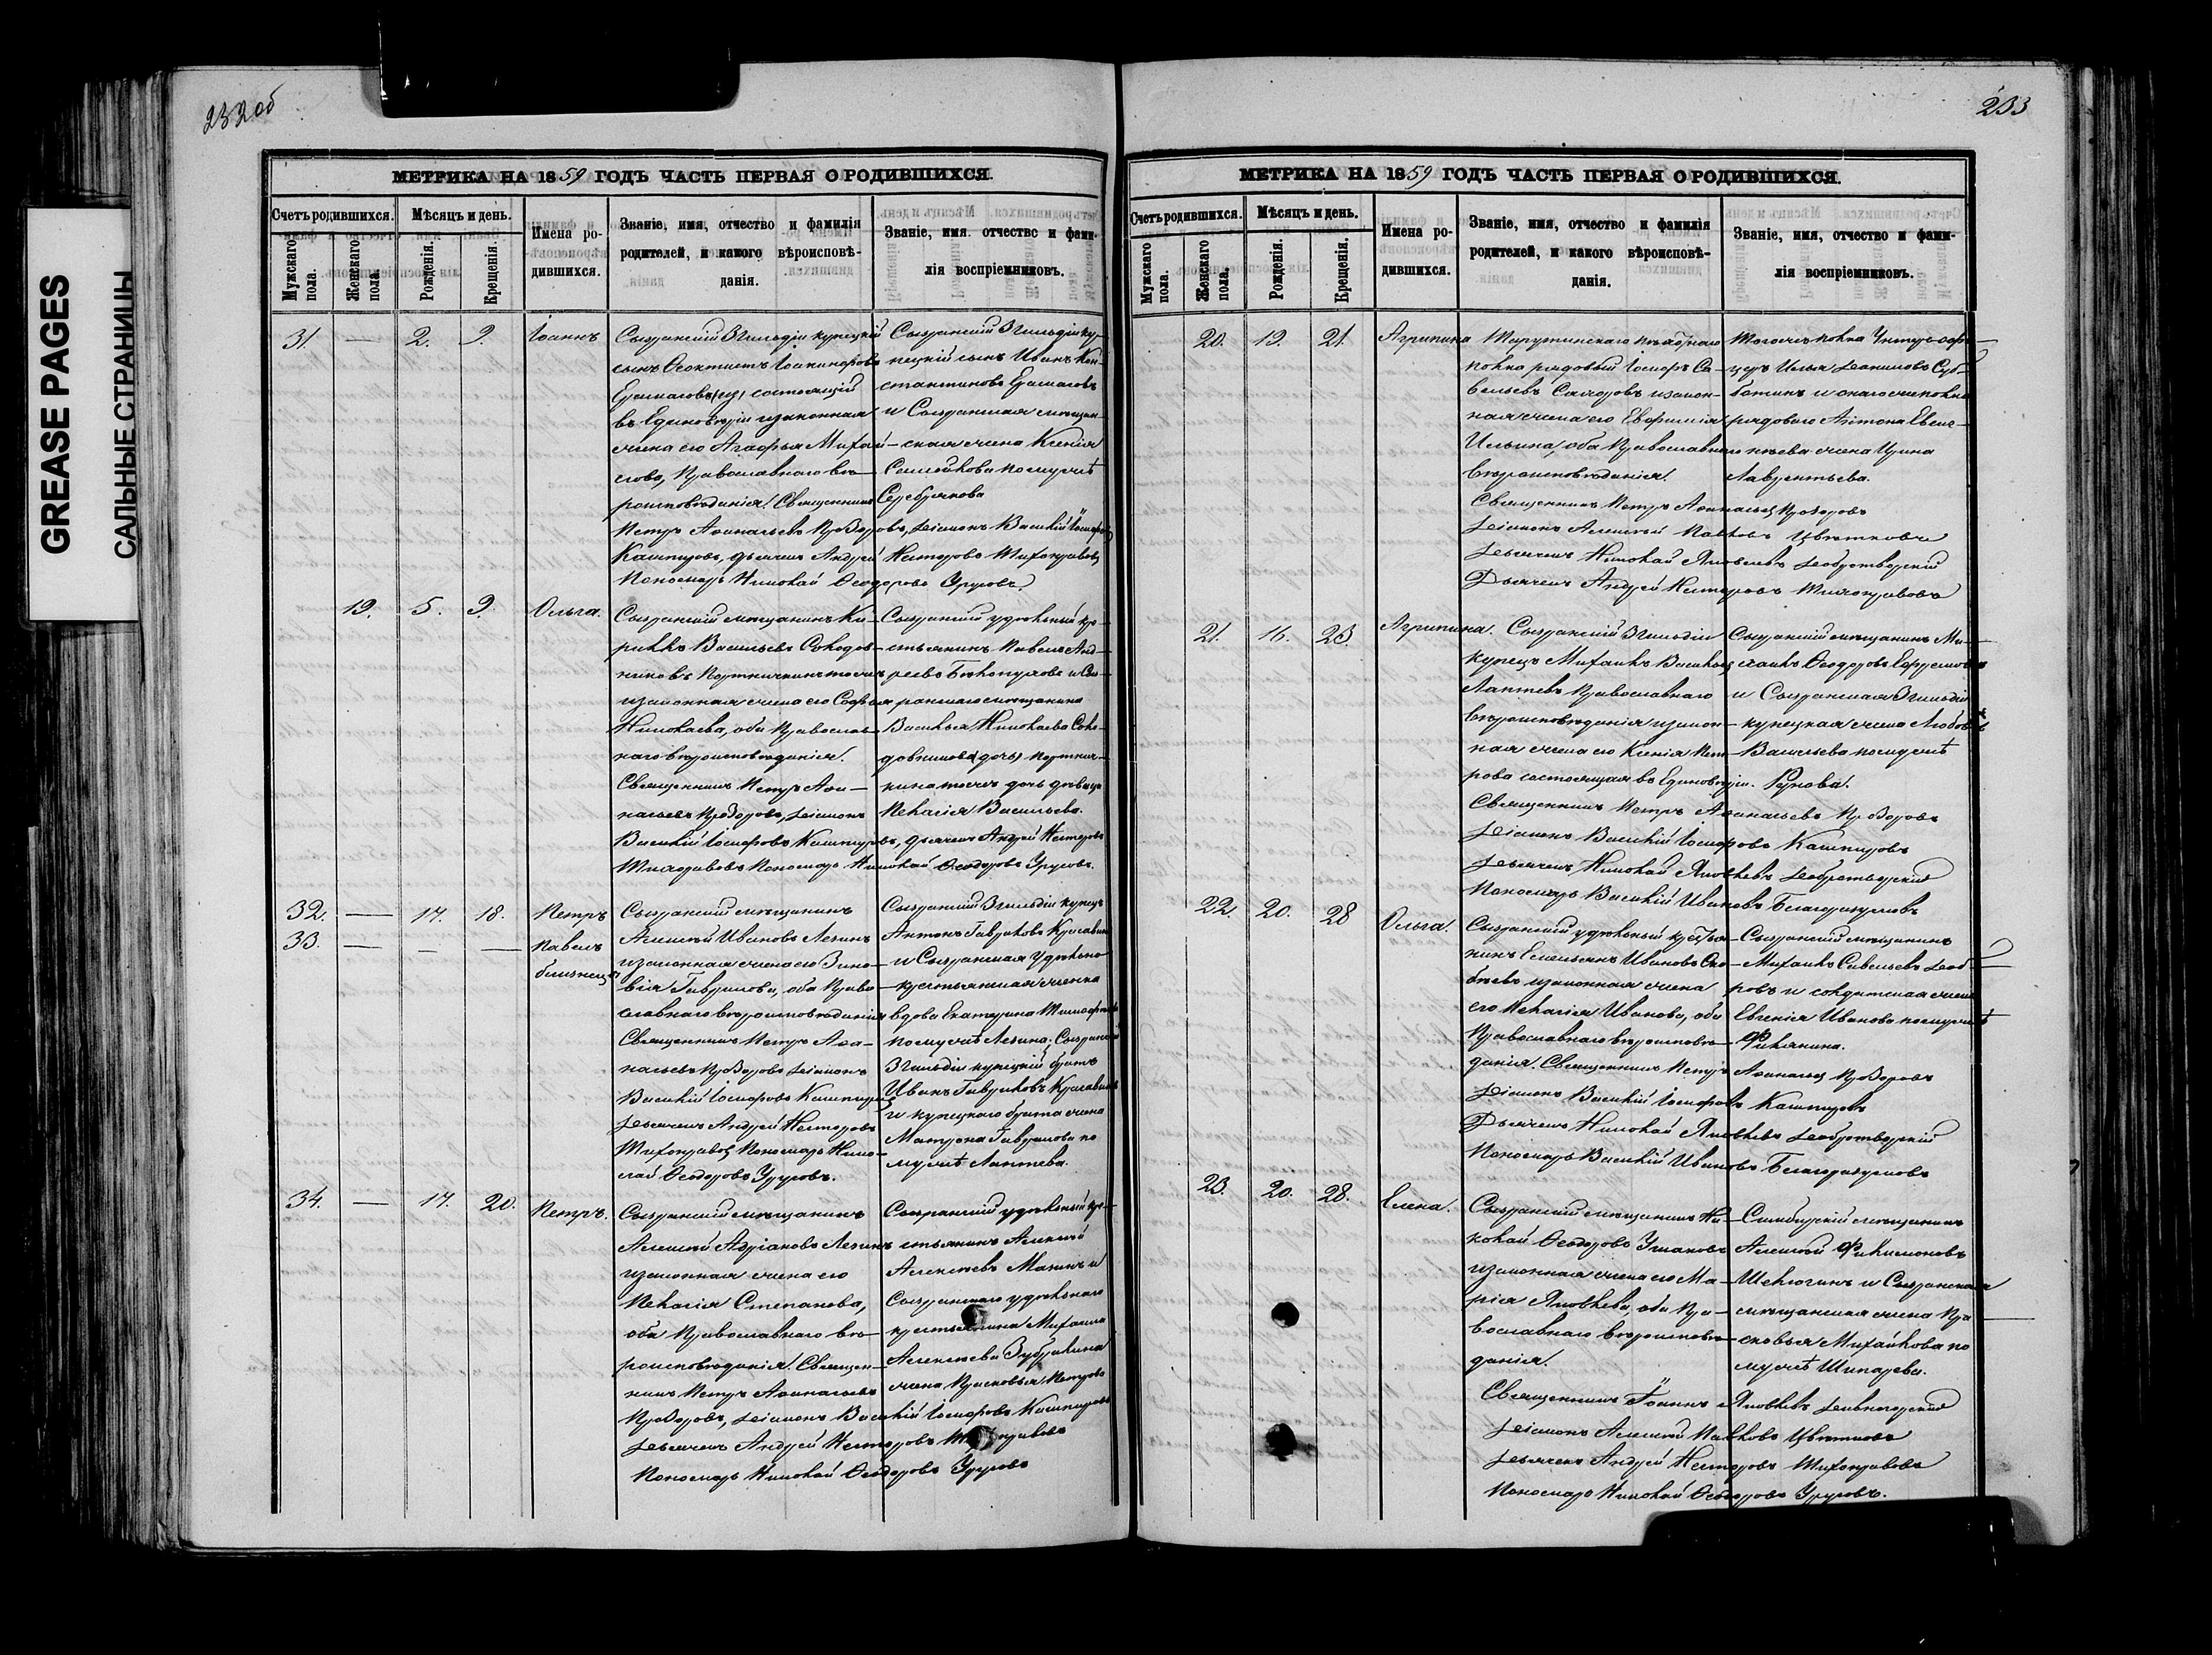 GREASE PAGES
САЛЬНЫЕ СТРАНИЦЫ
232 об
МЕТРИКА НА 1859 ГОДЪ ЧАСТЬ ПЕРВАЯ О РОДИВШИХСЯ.
Счетъ родившихся.
Мѣсяцъ и день.
Мужскаго пола.
Женскаго пола.
Рожденія.
Крещенія.
Имена родившихся.
Званіе, имя, отчество и фамилія
родителей, и какого вѣроисповѣ-
данія.
Званіе, имя. отчество и фами-
лія воспріемниковъ.
31. — 2. 9. Іоаннъ
Сызранскій 3 гильдіи купецкій
сынъ Ѳеоктистъ
состоящій
въ Единовѣріи и законная
жена его Агафья Михай-
лова, Православнаго вѣ-
роисповѣданія. Священникъ
Петръ Аѳанасьевъ, Діаконъ Василій Іосифовъ
Кашпировъ, Дьячекъ Андрей Несторовъ Тихонравовъ
Пономарь Николай Ѳеодоровъ
Сызранскій 3 гильдіи ку-
пецкій сынъ Иванъ Кон-
стантиновъ
и Сызранская мѣщан-
ская жена Ксенія
по мужѣ
Серебрякова
19. 5. 9. Ольга.
Сызранскій мѣщанинъ Ки-
риллъ Васильевъ
и законная жена его Софья
Николаева, оба Православ-
наго вѣроисповѣданія.
Священникъ Петръ Аѳа-
насьевъ, Діаконъ
Василій Іосифовъ Кашпировъ, Дьячекъ Андрей Несторовъ
Тихонравовъ Пономарь Николай Ѳеодоровъ
Сызранскій удѣльный кре-
стьянинъ Павелъ Анд-
реевъ и Сыз-
ранскаго мѣщанина
Василья Николаева
дочь дѣвица
Пелагія Васильева.
32. — 17. 18. Петръ
33. — — — Павелъ
близнецы
Сызранскій мѣщанинъ
Алексѣй Ивановъ Лезинъ
и законная жена его Зино-
вія Гаврилова, оба Право-
славнаго вѣроисповѣданія
Священникъ Петръ Аѳа-
насьевъ Діаконъ
Василій Іосифовъ Кашпировъ
Дьячекъ Андрей Несторовъ
Тихонравовъ Пономарь Нико-
лай Ѳеодоровъ
Сызранскій 3 гильдіи купецъ
Антонъ Гавриловъ
и Сызранская удѣльно-
крестьянская женка
вдова Екатерина Тимофеева
по мужѣ Лезина, Сызранской
3 гильдіи купецкій братъ
Иванъ Гавриловъ
и купецкаго брата жена
Матрона Гаврилова по
мужѣ Лаптева.
34. — 17. 20. Петръ.
Сызранскій мѣщанинъ
Алексѣй Адріановъ Лезинъ
и законная жена его
Пелагія Степанова,
оба Православнаго вѣ-
роисповѣданія. Священ-
никъ Петръ Аѳанасьевъ
Діаконъ Василій Іосифовъ Кашпировъ
Дьячекъ Андрей Несторовъ Тихонравовъ
Пономарь Николай Ѳеодоровъ
Сызранскій удѣльный кре-
стьянинъ Алексѣй
Алексѣевъ Мазинъ и
Сызранскаго удѣльнаго
крестьянина Михаила
Алексѣева
жена Прасковья Петрова
233
МЕТРИКА НА 1859 ГОДЪ ЧАСТЬ ПЕРВАЯ О РОДИВШИХСЯ.
Счетъ родившихся.
Мѣсяцъ и день.
Мужскаго пола.
Женскаго пола.
Рожденія.
Крещенія.
Имена родившихся.
Званіе, имя, отчество и фамилія
родителей, и какого вѣроисповѣ-
данія.
Званіе, имя, отчество и фами-
лія воспріемниковъ.
20. 19. 21. Агрипина
Тарутинскаго пѣхотнаго
полка рядовый Іосифъ Са-
вельевъ и закон-
ная жена его Евфимія
Ильина, оба Православнаго
вѣроисповѣданія.
Священникъ Петръ Аѳанасьевъ
Діаконъ Алексѣй Павловъ Цвѣтковъ
Дьячекъ Николай Яковлевъ Добротворскій
Дьячекъ Андрей Несторовъ Тихонравовъ
Тогожъ полка Унтеръ-офи-
церъ Илья Даниловъ Суб-
ботинъ и онаго же полка
рядоваго Антона
жена Ирина
Лаврентьева.
21. 16. 23. Агрипина.
Сызранскій 3 гильдіи
купецъ Михаилъ Васильевъ
Лаптевъ Православнаго
вѣроисповѣданія и закон-
ная жена его Ксенія Пет-
рова состоящая въ Единовѣріи.
Священникъ Петръ Аѳанасьевъ
Діаконъ Василій Іосифовъ Кашпировъ
Дьячекъ Николай Яковлевъ Добротворскій
Пономарь Василій Ивановъ Благоразумовъ
Сызранскій мѣщанинъ Ми-
хаилъ Ѳеодоровъ
и Сызранская 3 гильдіи
купецкая жена Любовь
Васильева по мужѣ
22. 20. 28 Ольга.
Сызранскій удѣльный крестья-
нинъ Емельянъ Ивановъ
и законная жена
его Пелагія Иванова, оба
Православнаго вѣроисповѣ-
данія. Священникъ Петръ Аѳанасьевъ
Діаконъ Василій Іосифовъ Кашпировъ
Дьячекъ Николай Яковлевъ Добротворскій
Пономарь Василій Ивановъ Благоразумовъ
Сызранскій мѣщанинъ
Михаилъ Савельевъ
и солдатская жена
Евгенія Иванова по мужѣ
23. 20. 28. Елена.
Сызранскій мѣщанинъ Ни-
колай Ѳеодоровъ Ушаковъ
и законная жена его Ма-
рія Яковлева, оба Пра-
вославнаго вѣроисповѣ-
данія.
Священникъ Іоаннъ Яковлевъ Дивногорскій
Діаконъ Алексѣй Павловъ Цвѣтковъ
Дьячекъ Андрей Несторовъ Тихонравовъ
Пономарь Николай Ѳеодоровъ
Симбирскій мѣщанинъ
Алексѣй Филимоновъ
и Сызранская
мѣщанская жена Пра-
сковья Михайлова по
мужѣ